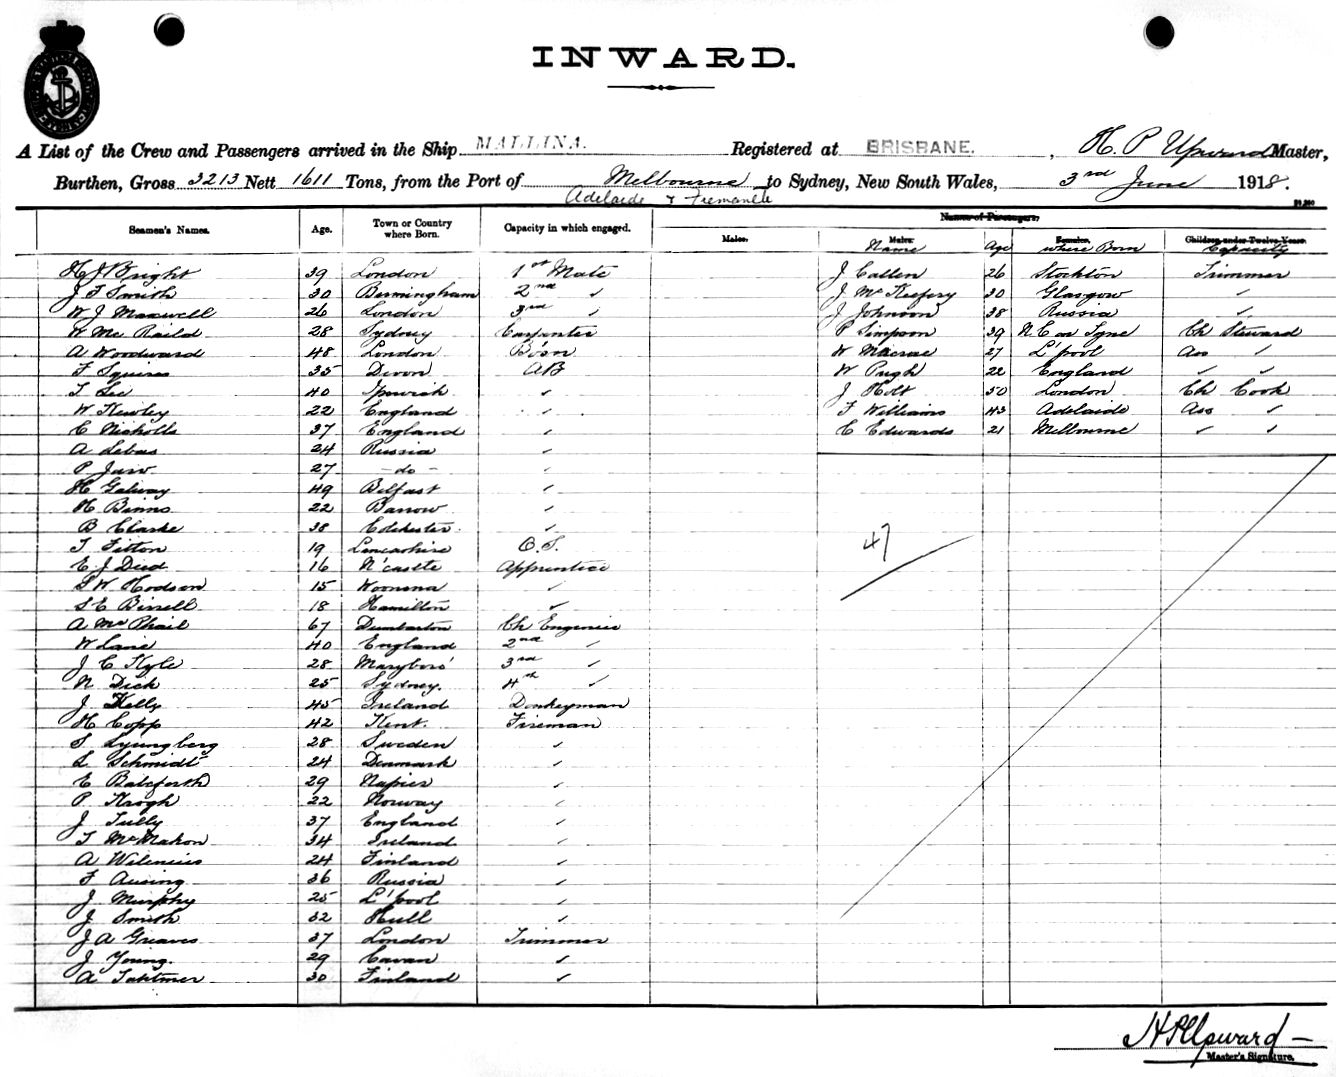 INWARD.
A List of the Crew and Passengers arrived in the Ship MALLINA. Registered at BRISBANE. , H. P Upward Master,
Burthen, Gross 3213 Nett 1611 Tons, from the Port of Melbourne to Sydney, New South Wales, 3rd June 1918.
Adelaide & Fremantle
Names of Passengers.
Seamen's Names. Age. Town or Country where Born. Capacity in which engaged. Males. Males. Females. Children under Twelve Years.
Name Age where Born Capacity
H J Bright 39 London 1st Mate J Callen 26 Stockton Trimmer
J F Smith 30 Birmingham 2nd ✓ J McKeefery 30 Glasgow ✓
W J Maxwell 26 London 3rd ✓ J Johnson 38 Russia ✓
W Mc Raild 28 Sydney Carpenter P Simpson 39 N.C on Tyne Ch Steward
A Woodward 48 London Bo'sn W Macrae 27 L'pool Ass ✓
F Squires 35 Devon AB W Pugh 22 England ✓ ✓
T Lee 40 Ipswich ✓ J Holt 50 London Ch Cook
W Kewley 22 England ✓ F Williams 43 Adelaide Ass ✓
C Nicholls 37 England ✓ C Edwards 21 Melbourne ✓ ✓
A Lebas 24 Russia ✓
P 27 - do - ✓
H Galway 49 Belfast ✓
H Binns 22 Barrow ✓
B Clarke 38 Colchester ✓
T Fitton 19 Lancashire O.S.
47
E J Died 16 N'castle Apprentice
S W Hodson 15 Woonona ✓
S E Birrell 18 Hamilton ✓
A McPhail 67 Dumbarton Ch Engineer
W Lane 40 England 2nd ✓
J C Kyle 28 Maryboro' 3rd ✓
N Dick 25 Sydney. 4th ✓
J Kelly 45 Ireland Donkeyman
H Copp 42 Kent. Fireman
S Lyungberg 28 Sweden ✓
L Schmidt 24 Denmark ✓
E Balsforth 29 Napier ✓
P Krogh 22 Norway ✓
J Tully 37 England ✓
T McMahon 34 Ireland ✓
A Wilenius 24 Finland ✓
F Ausing 36 Russia ✓
J Murphy 25 L'pool ✓
J Smith 32 Hull ✓
J A Greaves 37 London Trimmer
J Young. 29 Cavan ✓
A 30 Finland ✓
H P Upward
Master's Signature.